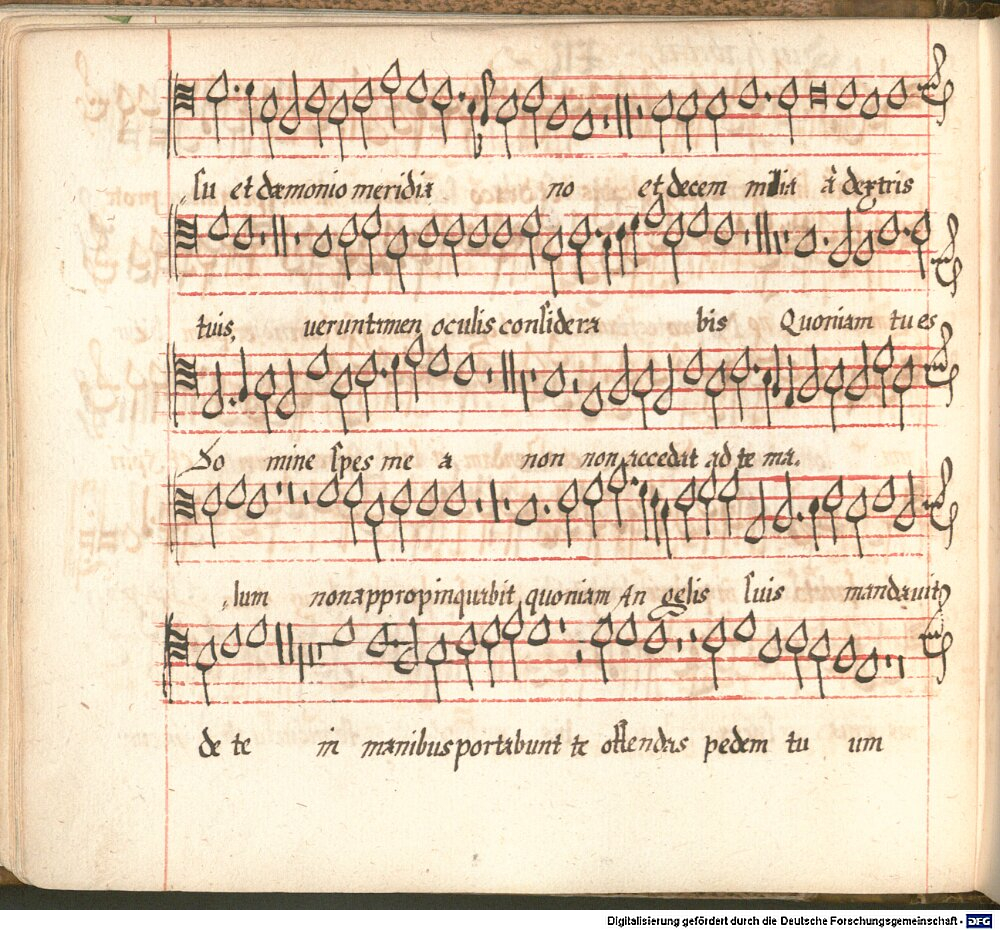 su et dæmonio meridia no et decem milia à dextris
tuis, ueruntamen oculis considera bis Quoniam tu es
Do mine spes me a non non accedat ad te ma.
lum non appropinquabit quoniam An gelis suis mandauit
de te in manibus portabunt te offendas pedem tu um
Digitalisierung gefördert durch die Deutsche Forschungsgemeinschaft - DFG